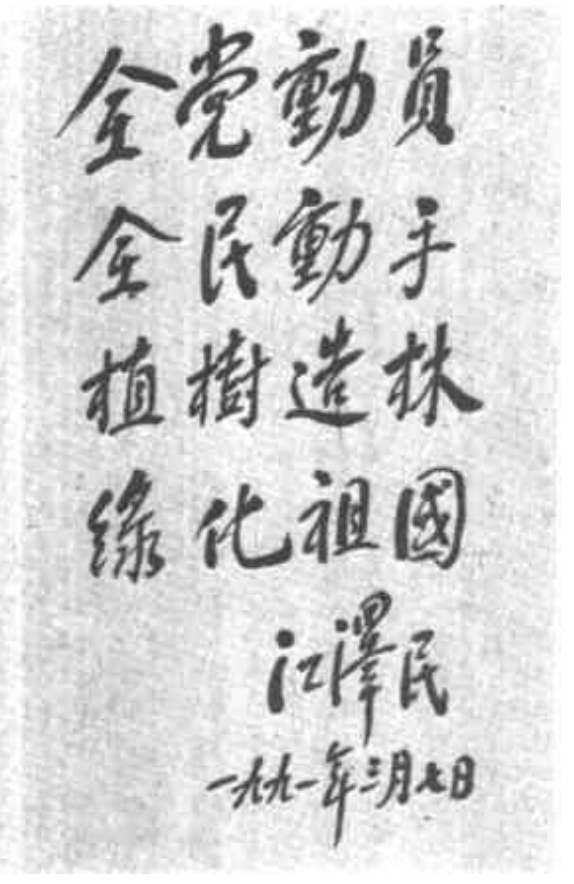 全党動員
全民動手
植樹造林
綠化祖國
江澤民
一九九一年三月七日